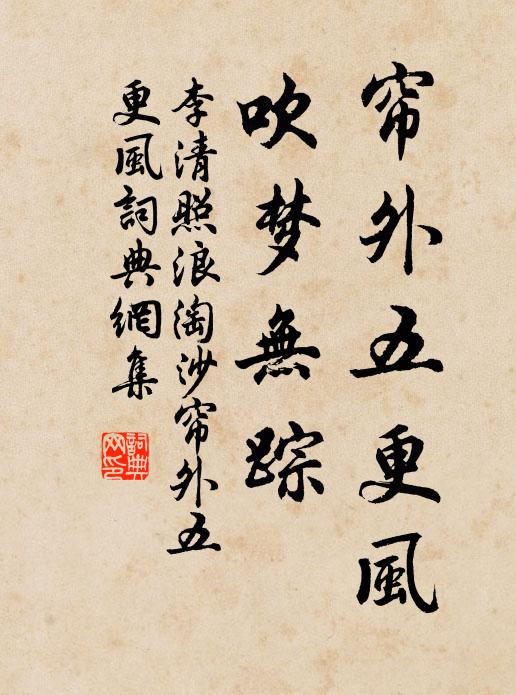 帘外五更風
吹梦無踪
李清照浪淘沙帘外五
更風詞典網集
詞典
网印